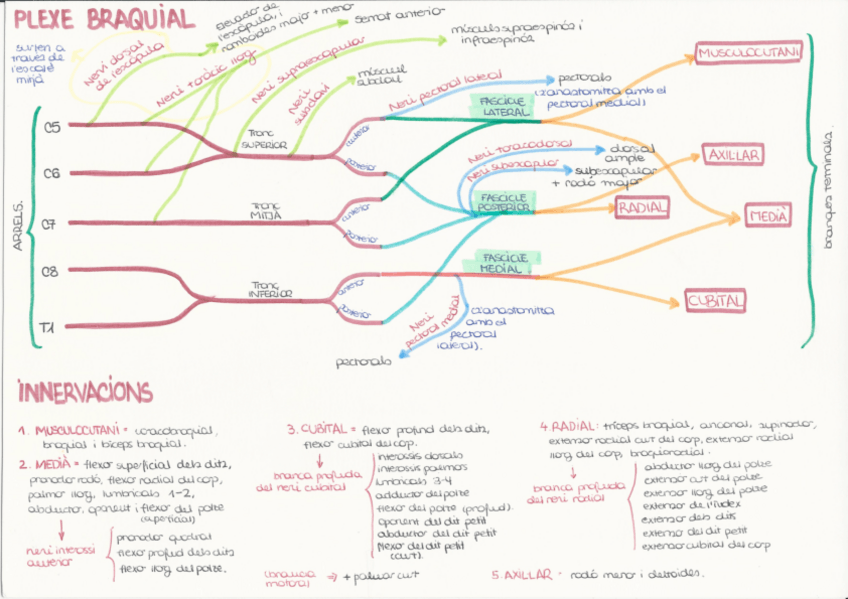 PLEXE BRAQUIAL
surten a
través de
l'escalè
mitjà
Nervi dorsal
de l'escàpula
elevador de
l'escàpula, i
romboides major + menor
Nervi toràcic llarg
Serrat anterior
Nervi supraescapular
músculs supraespinós i
infraespinós
Nervi
subclavi
múscul
subclavi
Nervi pectoral lateral
pectorals
(anastomitza amb el
pectoral medial)
ARRELS.
C5
C6
C7
C8
T1
Tronc
SUPERIOR
Tronc
MITJÀ
Tronc
INFERIOR
anterior
posterior
anterior
posterior
anterior
posterior
FASCICLE
LATERAL
FASCICLE
POSTERIOR
FASCICLE
MEDIAL
Nervi toracodorsal
dorsal
ample
Nervi subescapular
subescapular
+ rodó major
Nervi
pectoral medial
(anastomitza
amb el
pectoral
lateral).
pectorals
MUSCULOCUTANI
AXIL·LAR
RADIAL
MEDIÀ
CUBITAL
branques terminals.
INNERVACIONS
1. MUSCULOCUTANI = coracobraquial,
braquial i bíceps braquial.
2. MEDIÀ = flexor superficial dels dits,
pronador rodó, flexor radial del carp,
palmar llarg, lumbricals 1-2,
abductor, oponent i flexor del polze
(superficial)
nervi interossi
anterior
pronador quadrat
flexor profund dels dits
flexor llarg del polze.
3. CUBITAL = flexor profund dels dits,
flexor cubital del carp.
branca profunda
del nervi cubital
interossis dorsals
interossis palmars
lumbricals 3-4
adductor del polze
flexor del polze (profund).
oponent del dit petit
abductor del dit petit
flexor del dit petit
(curt).
(branca
motora) ⇒ + palmar curt
4. RADIAL: tríceps braquial, anconal, supinador,
extensor radial curt del carp, extensor radial
llarg del carp, braquioradial.
branca profunda
del nervi radial
abductor llarg del polze
extensor curt del polze
extensor llarg del polze
extensor de l'índex
extensor dels dits
extensor del dit petit
extensor cubital del carp
5. AXIL·LAR - rodó menor i deltoides.